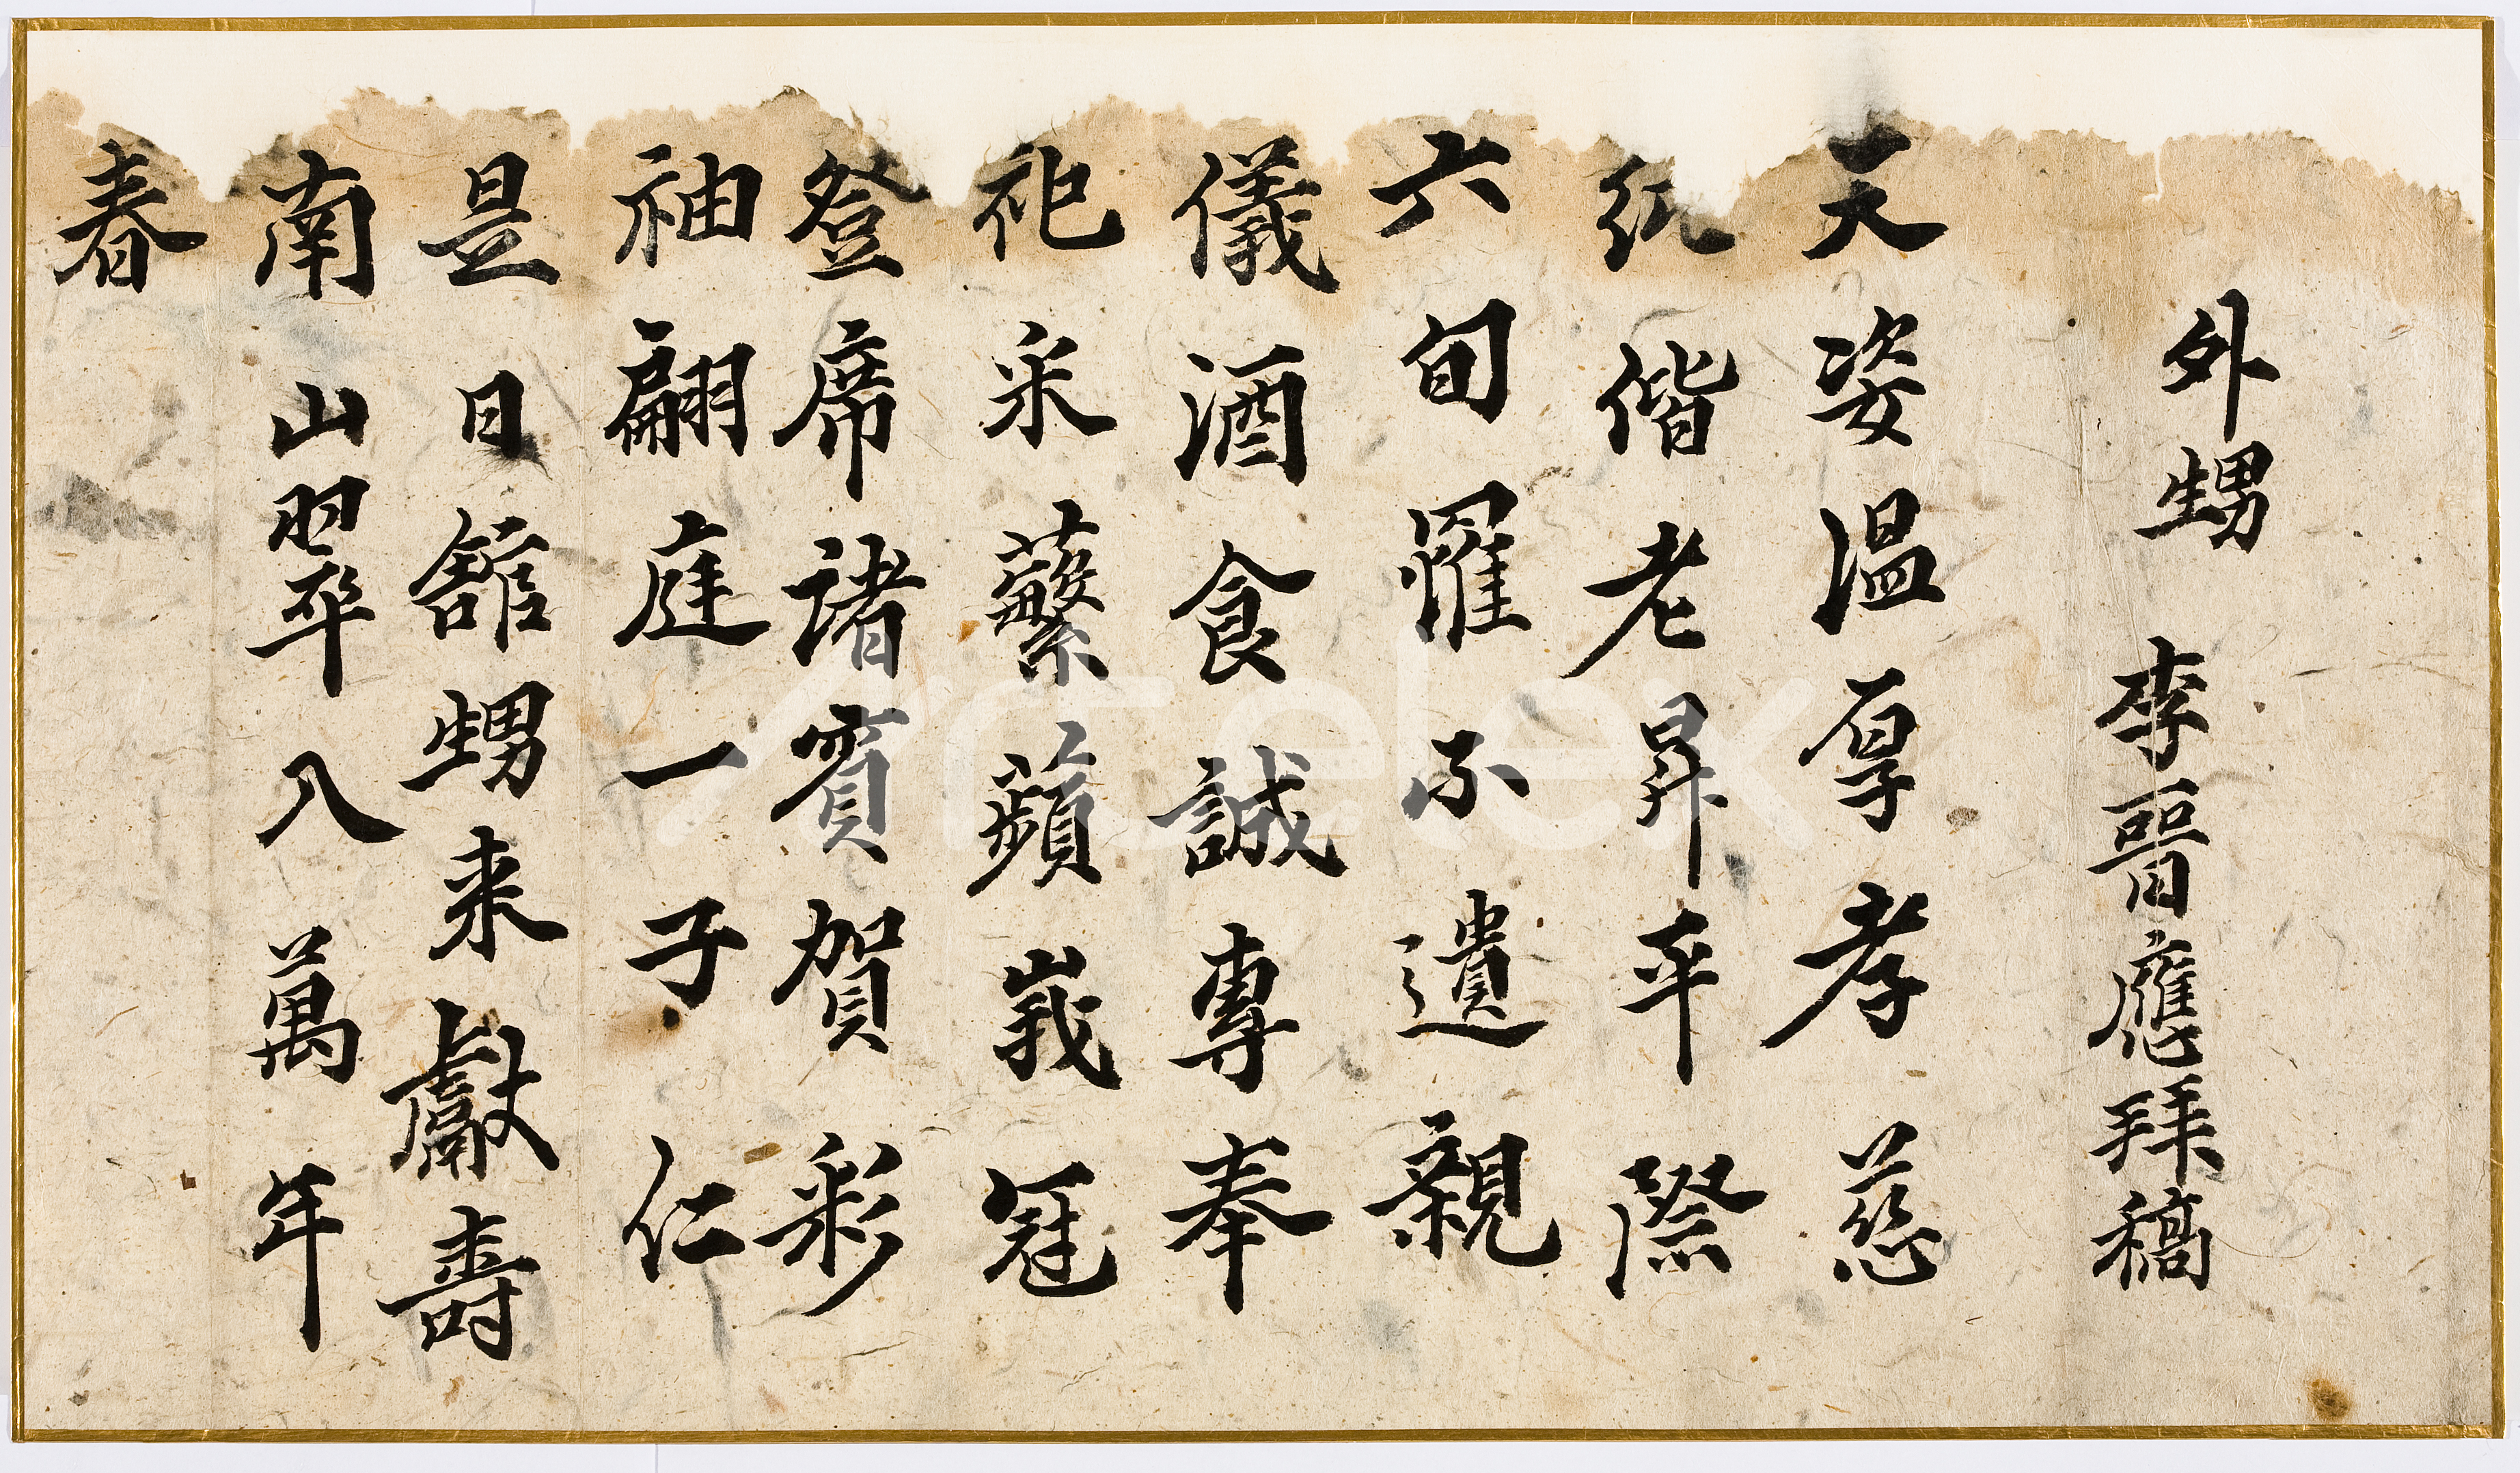 外甥 李晉應拜稿
天姿温厚孝慈
純偕老昇平際
六旬罹不遺親
儀酒食誠專奉
祀采蘩蘋峩冠
登席諸賓賀彩
袖翩庭一子仁
是日舘甥来獻壽
南山翠入萬年
春
Artelex